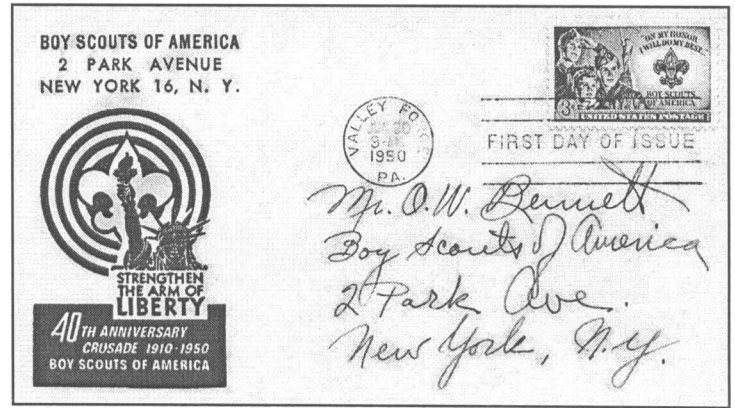 BOY SCOUTS OF AMERICA
2 PARK AVENUE
NEW YORK 16, N. Y.
STRENGTHEN
THE ARM OF
LIBERTY
40TH ANNIVERSARY
CRUSADE 1910-1950
BOY SCOUTS OF AMERICA
VALLEY FORGE
JUN 30
9-AM
1950
PA.
"ON MY HONOR
I WILL DO MY BEST..."
BOY SCOUTS
OF AMERICA
3¢
UNITED STATES POSTAGE
FIRST DAY OF ISSUE
Mr. O.W. Bennett
Boy Scouts of America
2 Park Ave.
New York, N.Y.